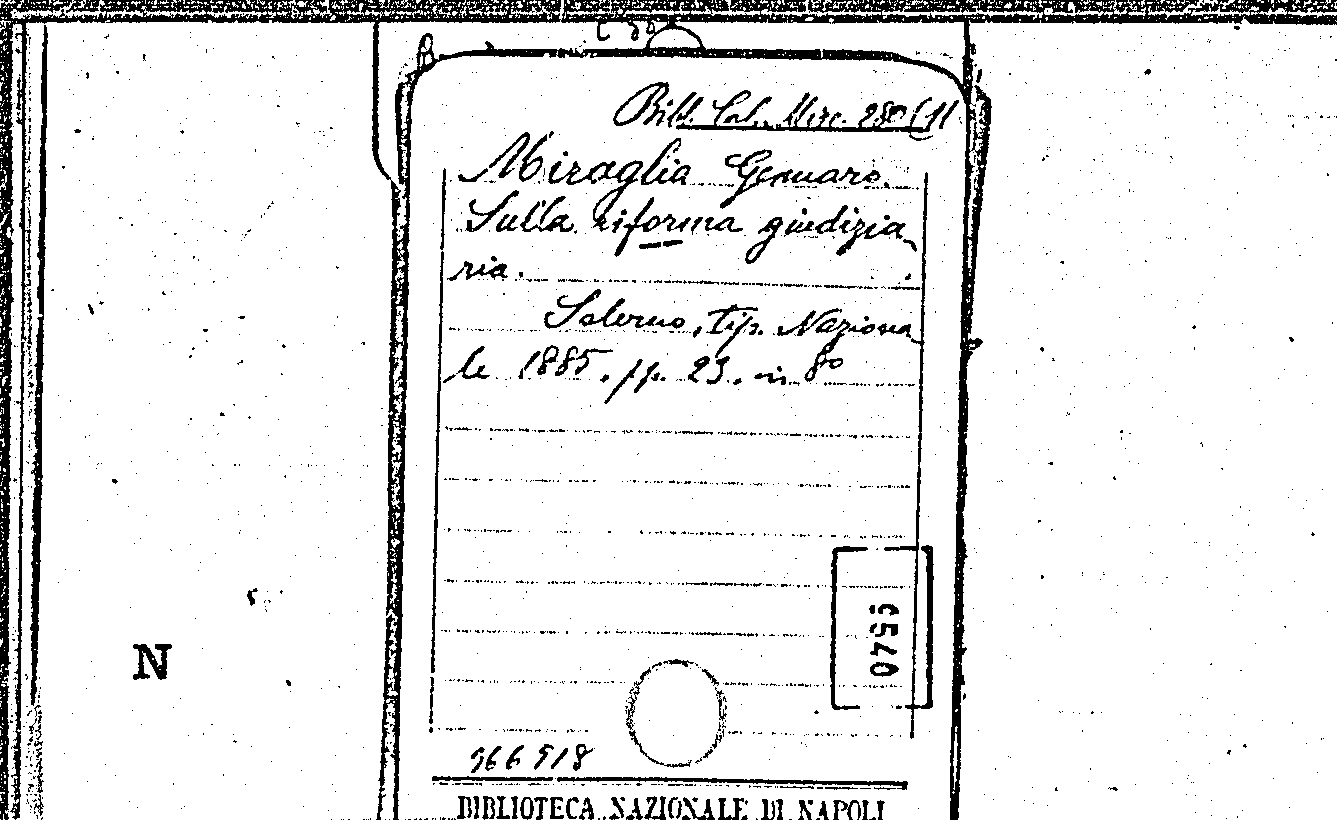 Bibl. Col. Merc. 280 (11
Miraglia Gennaro.
Sulla riforma giudizia
ria.
Salerno, tip. Naziona
le 1885. pp. 23. in 8º
N
966518
BIBLIOTECA NAZIONALE DI NAPOLI